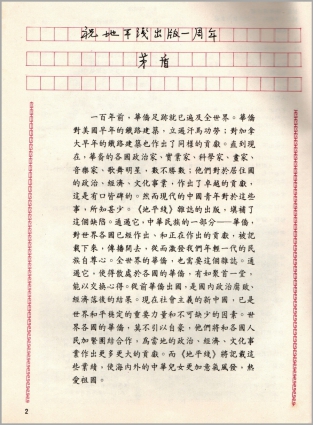 祝地平线出版一周年
茅盾
一百年前，華僑足跡就已遍及全世界。華僑
對美國早年的鐵路建築，立過汗馬功勞；對加拿
大早年的鐵路建築也作出了同樣的貢獻。直到現
在，華裔的各國政治家、實業家、科學家、畫家、
音樂家、歌舞明星，數不勝數；他們對於居住國
的政治、經濟、文化事業，作出了卓越的貢獻，
這是有口皆碑的。然而現代的中國青年對於這些
事，所知甚少。《地平綫》雜誌的出版，填補了
這個缺陷。通過它，中華民族的一部分——華僑，
對世界各國已經作出、和正在作出的貢獻，被記
載下來，傳播開去，從而激發我們年輕一代的民
族自尊心。全世界的華僑，也需要這個雜誌。通
過它，使得散處於各國的華僑，有如聚首一堂，
能以交換心得。從前華僑出國，是國內政治腐敗、
經濟落後的結果。現在社會主義的新中國，已是
世界和平穩定的重要力量和不可缺少的因素。世
界各國的華僑，莫不引以自豪，他們將和各國人
民加緊團結合作，為當地的政治、經濟、文化事
業作出更多更大的貢獻。而《地平綫》將記載這
些業績，使海內外的中華兒女更加意氣風發，熱
愛祖國。
2